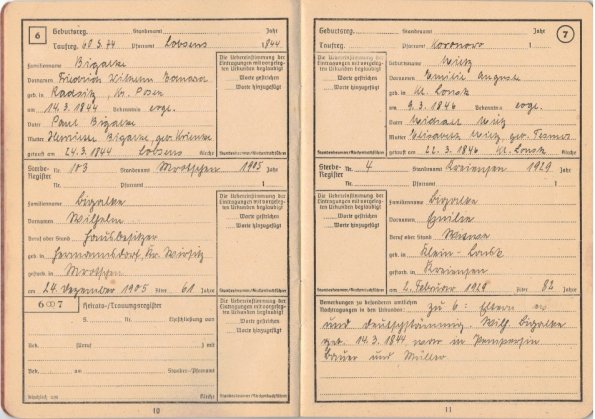 6
Geburtsreg. Standesamt Jahr
Taufreg. Pfarramt Lobsens 1844
Familienname Bigalke
Vornamen Friedrich Wilhelm
geb. in Radsitz, Kr. Posen
am 14.3.1844 Bekenntnis evgl.
Vater Paul Bigalke
Mutter Henriette Bigalke, geb. Krienke
getauft am 24.3.1844 Lobsens Kirche
Die Übereinstimmung der
Eintragungen mit vorgeleg-
ten Urkunden beglaubigt
Worte gestrichen
Worte hinzugefügt
Standesbeamter/Kirchenbuchführer
Sterbe-Register Nr. 103 Standesamt Mrotschen 1905 Jahr
Nr. Pfarramt
Familienname Bigalke
Vornamen Wilhelm
Beruf oder Stand Hausbesitzer
geb. in Hermannsdorf, Kr. Wirsitz
gestorb. in Mrotschen
am 24. Dezember 1905 Alter 61 Jahre
Die Übereinstimmung der
Eintragungen mit vorgeleg-
ten Urkunden beglaubigt
Worte gestrichen
Worte hinzugefügt
Standesbeamter/Kirchenbuchführer
6 ∞ 7 Heirats-/Trauungsregister
S. Nr. Eheschließung von
Bek. (Beruf) mit
Bek. am Standes-/Pfarramt
Kirche
Die Übereinstimmung der
Eintragungen mit vorgeleg-
ten Urkunden beglaubigt
Worte gestrichen
Worte hinzugefügt
Standesbeamter/Kirchenbuchführer
10
7
Geburtsreg. Standesamt Jahr
Taufreg. Pfarramt Koronowo
Familienname
Vornamen Emilie Auguste
geb. in Kl. Lonsk
am 9.3.1846 Bekenntnis evgl.
Vater Michael
Mutter Elisabeth geb.
getauft am 22.3.1846 Kl. Lonsk Kirche
Die Übereinstimmung der
Eintragungen mit vorgeleg-
ten Urkunden beglaubigt
Worte gestrichen
Worte hinzugefügt
Standesbeamter/Kirchenbuchführer
Sterbe-Register Nr. 4 Standesamt Kreiensen 1929 Jahr
Nr. Pfarramt
Familienname Bigalke
Vornamen Emilie
Beruf oder Stand Witwe
geb. in Klein-Lonsk
gestorb. in Kreiensen
am 2. Februar 1929 Alter 82 Jahre
Die Übereinstimmung der
Eintragungen mit vorgeleg-
ten Urkunden beglaubigt
Worte gestrichen
Worte hinzugefügt
Standesbeamter/Kirchenbuchführer
Bemerkungen zu besonderen amtlichen
Nachtragungen in den Urkunden: zu 6: Eltern
und deutschstämmig. Wilh. Bigalke
geb. 14.3.1844 war in
Bauer und Müller
11